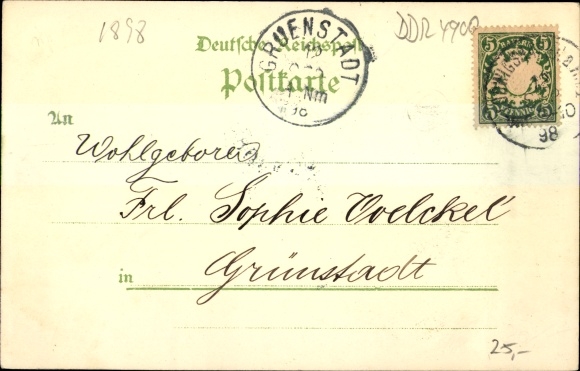 1898
DDR 4900
Deutsche Reichspost
Postkarte
GRUENSTADT
1 Nm
98
BAYERN
5 5
5 5
PFENNIG
98
An
Wohlgeboren
Frl. Sophie Voelckel
in Grünstadt
25,-